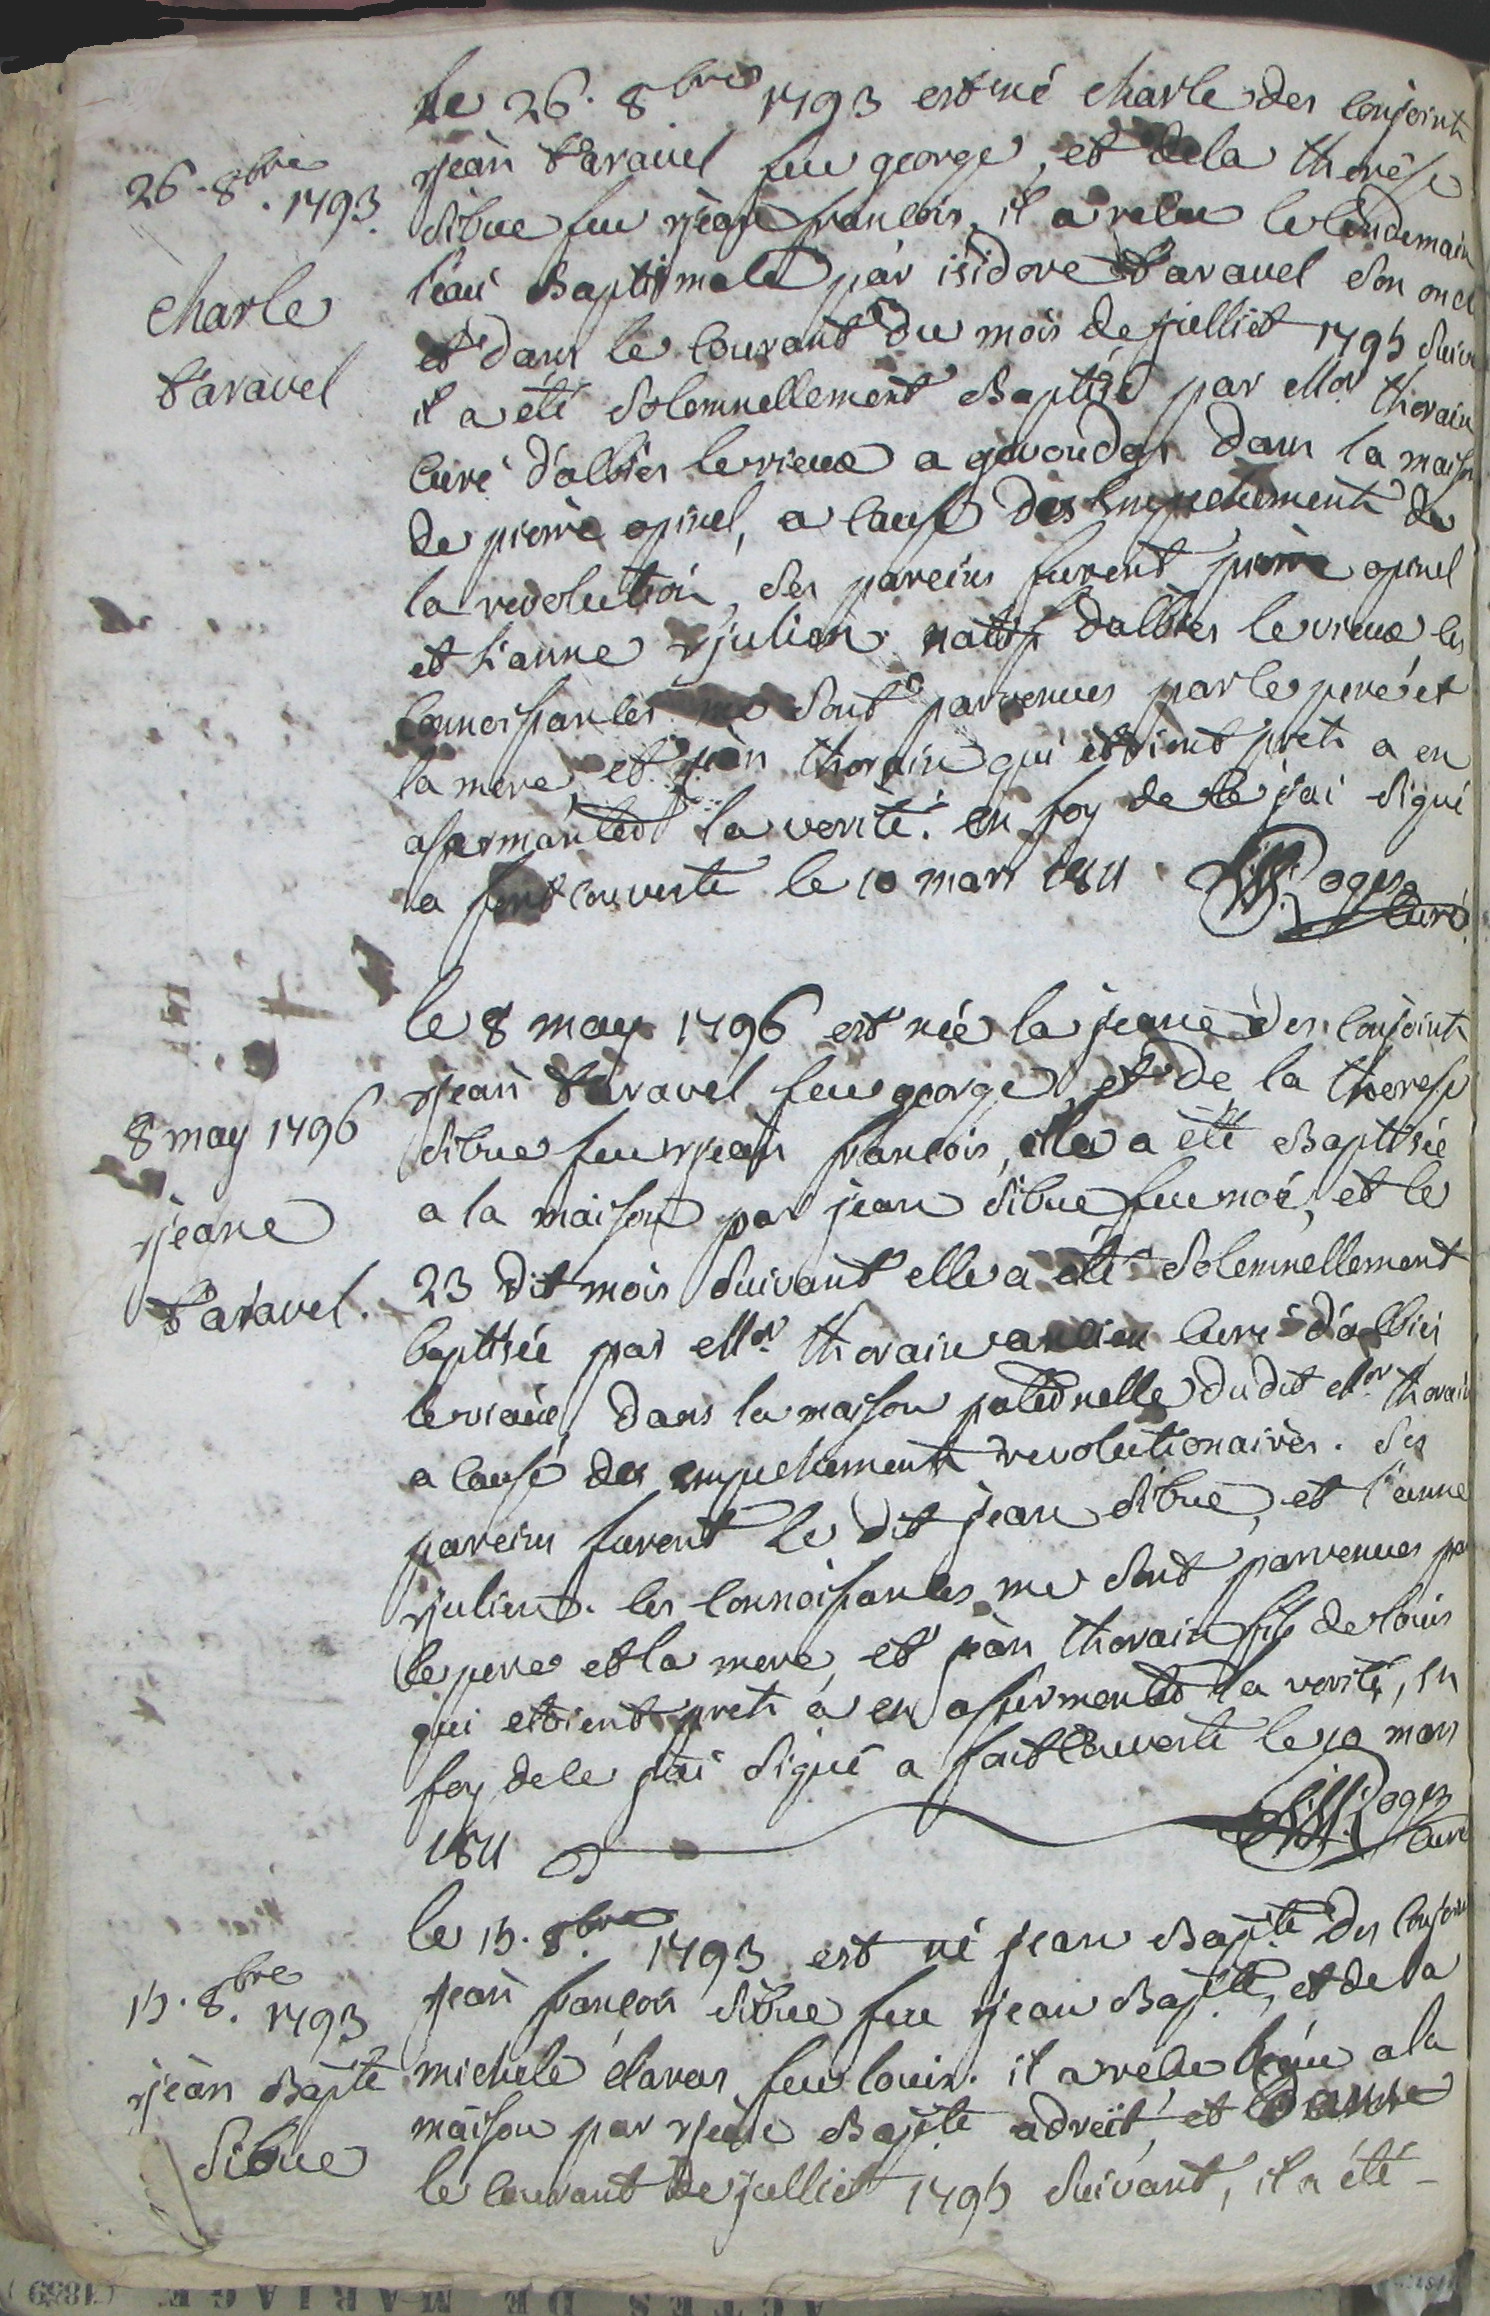 26. 8bre. 1793.
Charle
taravel
le 26. 8bre 1793 est né charle des conjoints
jean taravel feu george, et de la therése
sibue feu jean francois, il a recu le lendemain
l'eau Baptismale par isidore taravel son oncl
et dans le courant du mois de julliet 1795 suiv
il a été solemnellement Baptisé par Mr. thorain
curé d'albiés le vieux a gevoudas dans la maison
de pierre opinel, a cause des empechements de
la revolution, ses pareins furent pierre opinel
et l'anne julien natifs d'albiés le vieux, les
connoissances me sont parvenues par le pere et
la mere, et jean thorain qui etoient prets a en
assermanter la verité. en foy de ce j'ai signé
a font couverte le 10 mars 1811. Roger
curé
8 may 1796
jeane
taravel.
le 8 may 1796 est née la jeane des conjoints
jean taravel feu george, et de la therese
sibue feu jean francois, elle a été Baptisée
a la maison par jean sibue feu noé, et le
23 dit mois suivant elle a été solemnellement
baptisée par Mr. thorain ancien curé d'albiés
le vieux, dans la maison paternelle dudit Mr. thorain
a cause des empechements revolutionaires. ses
pareins furent le dit jean sibue, et l'anne
julien. les connoissances me sont parvenues par
le pere et la mere, et jean thorain fils de louis
qui etoient prets a en assermenter la verité, en
foy de ce j'ai signé a font couverte le 10 mars
1811 Roger
curé
15. 8bre. 1793
jean Bapte
Sibue
le 15. 8bre. 1793 est né jean Bapte des conjoints
jean françois sibue feu jean Bapte, et de la
michele claras feu louis. il a recu l'eau a la
maison par jean Bapte adreït, et dans
le courant de julliet 1795 suivant, il a été -
ACTES DE MARIAGE (1859)